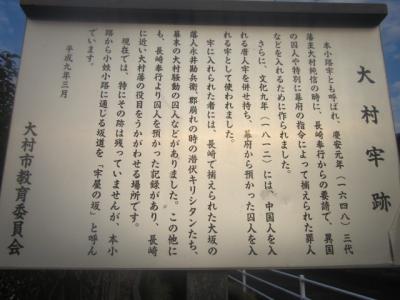 大村牢跡
本小路牢とも呼ばれ、慶安元年（一六四八）三代
藩主大村純信の時に、長崎奉行からの要請で、異国
の囚人や特別に幕府の指令によって捕えられた罪人
などを入れるために作られました。
さらに、文化九年（一八一二）には、中国人を入
れる唐人牢を併せ持ち、幕府から預かった囚人を入
れる牢として使われました。
牢に入れられた者には、長崎で捕えられた大坂の
落人永井勘兵衛、郡崩れの時の潜伏キリシタンたち、
幕末の大村騒動の囚人などがありました。この他に
も、長崎奉行より囚人を預かった記録があり、長崎
に近い大村藩の役目をうかがわせる場所です。
現在では、特にその跡は残っていませんが、本小
路から小姓小路に通じる坂道を「牢屋の坂」と呼ん
でいます。
平成九年三月
大村市教育委員会